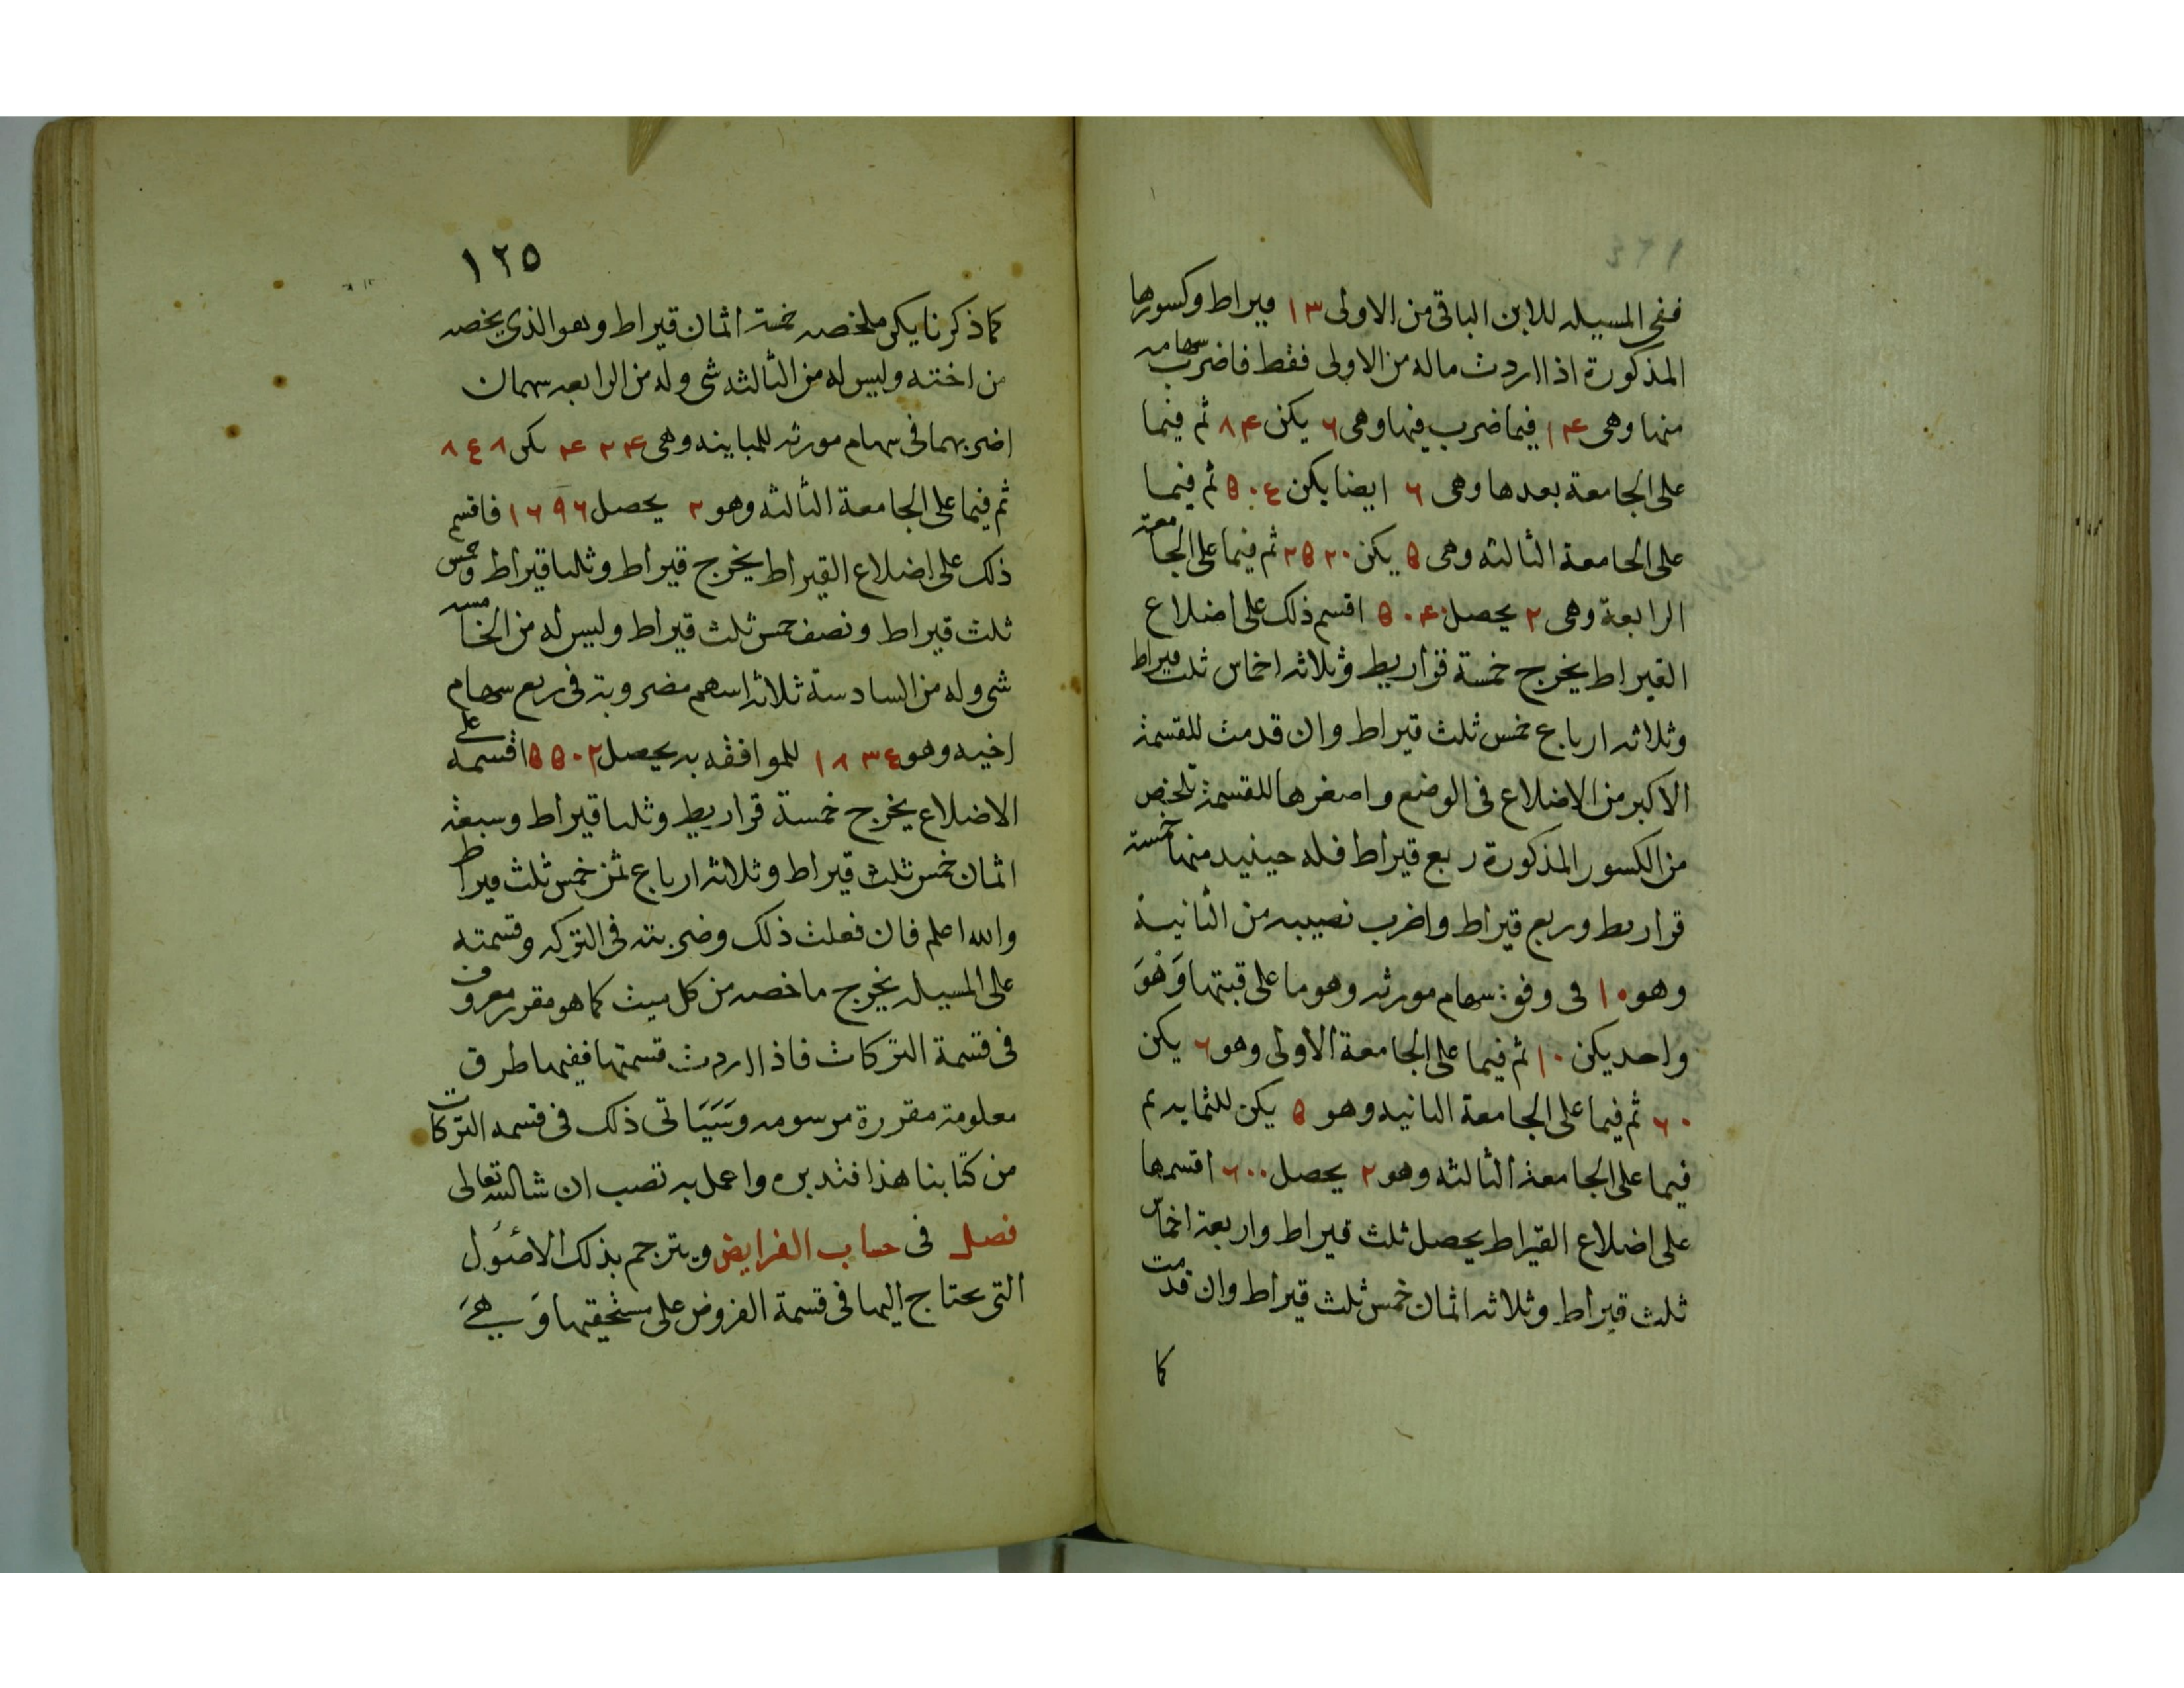 ففي المسيله للابن الباقي من الاولى ١٣ قيراط وكسورها
المذكورة اذا اردت ماله من الاولى فقط فاضرب سهامه
منها وهي ١٤ فيما ضرب فيها وهي ٦ يكن ٨٤ ثم فيما
على الجامعة بعدها وهي ٦ ايضا يكن ٥٠٤ ثم فيما
على الجامعة الثالثه وهي ٥ يكن ٢٥٢٠ ثم فيما على الجامعة
الرابعة وهي ٢ يحصل ٥٠٤٠ اقسم ذلك على اضلاع
القيراط يخرج خمسة قراريط وثلاثه اخماس ثلث قيراط
وثلاثه ارباع خمس ثلث قيراط وان قدمت للقسمة
الاكبر من الاضلاع في الوضع واصغرها للقسمة تلخص
من الكسور المذكورة ربع قيراط فله حينيد منها خمسة
قراريط وربع قيراط واضرب نصيبه من الثانية
وهو ١٠ في وفق سهام مورثه وهو ما على قبتها وهو
واحد يكن ١٠ ثم فيما على الجامعة الاولى وهو ٦ يكن
٦٠ ثم فيما على الجامعة الثانيه وهو ٥ يكن ثم
فيما على الجامعة الثالثه وهو ٢ يحصل ٦٠٠ اقسمها
على اضلاع القيراط يحصل ثلث قيراط واربعة اخماس
ثلث قيراط وثلاثه اثمان خمس ثلث قيراط وان قدمت
كما
١٢٥
كما ذكرنا يكن ملخصه خمسة اثمان قيراط وهو الذي يخصه
من اخته وليس له من الثالثه شي وله من الرابعه سهمان
اضربهما في سهام مورثه للمباينه وهي ٤٢٤ يكن ٨٤٨
ثم فيما على الجامعة الثالثه وهو ٢ يحصل ١٦٩٦ فاقسم
ذلك على اضلاع القيراط يخرج قيراط وثلثا قيراط وخمس
ثلث قيراط ونصف خمس ثلث قيراط وليس له من الخامسه
شي وله من السادسة ثلاثه اسهم مضروبة في ربع سهام
اخيه وهو ١٨٣٤ للموافقه به يحصل ٥٥٠٢ اقسمه على
الاضلاع يخرج خمسة قراريط وثلثا قيراط وسبعة
اثمان خمس ثلث قيراط وثلاثه ارباع ثمن خمس ثلث قيراط
والله اعلم فان فعلت ذلك وضربته في التركه وقسمته
على المسيله يخرج ما خصه من كل ميت كما هو مقرر معروف
في قسمة التركات فاذا اردت قسمتها ففيها طرق
معلومة مقررة مرسومه وسياتي ذلك في قسمه التركات
من كتابنا هذا فتدبره واعمل به تصب ان شا الله تعالى
فصل في حساب الفرايض ويترجم بذلك الاصول
التي يحتاج اليها في قسمة الفروض على مستحقيها وهي